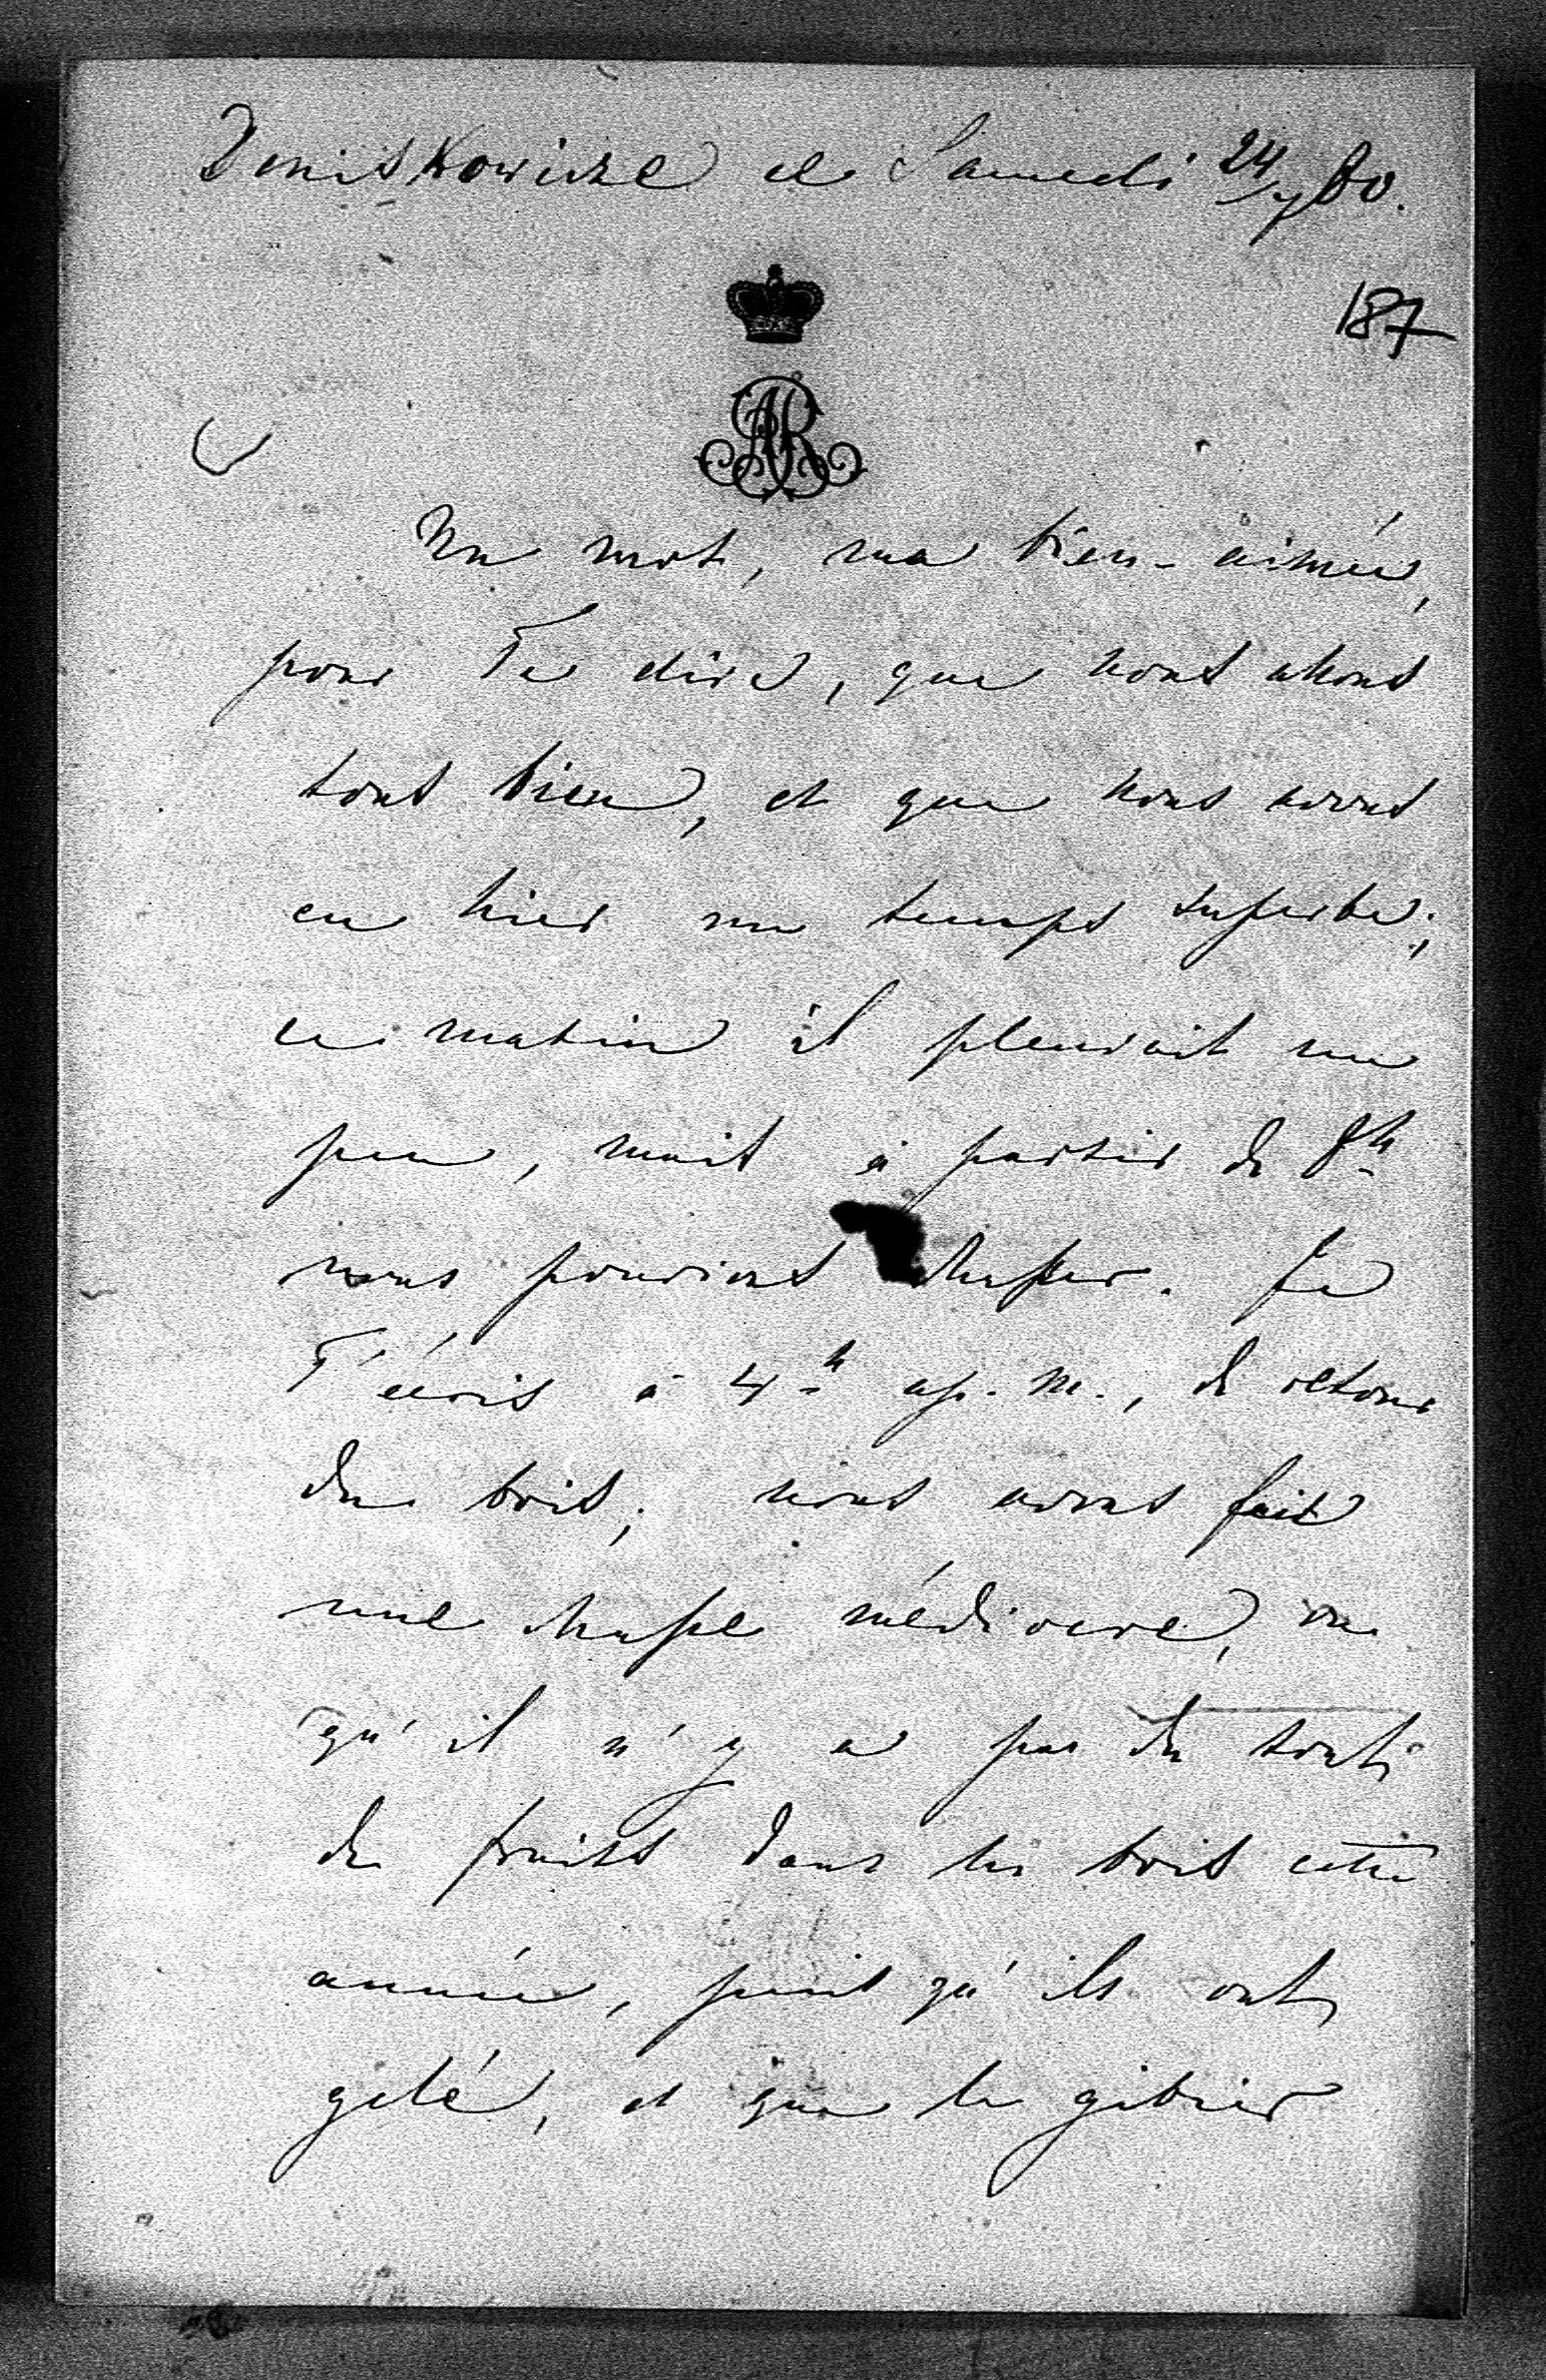 Deniskowicze ce Samedi 24/7 80.
187
AR
Un mot, ma bien-aimée,
pour Te dire, que nous allons
tous bien, et que nous avons
eu hier un temps superbe;
ce matin il pleuvait un
peu, mais à partir de 8h
nous pouvions chasser. Je
T'écris à 4h ap. m., de retour
du bois; nous avons fait
une chasse médiocre, vu
qu'il n'y a pas du tout
de fruits dans les bois cette
année, puisqu'ils ont
gelé, et que le gibier